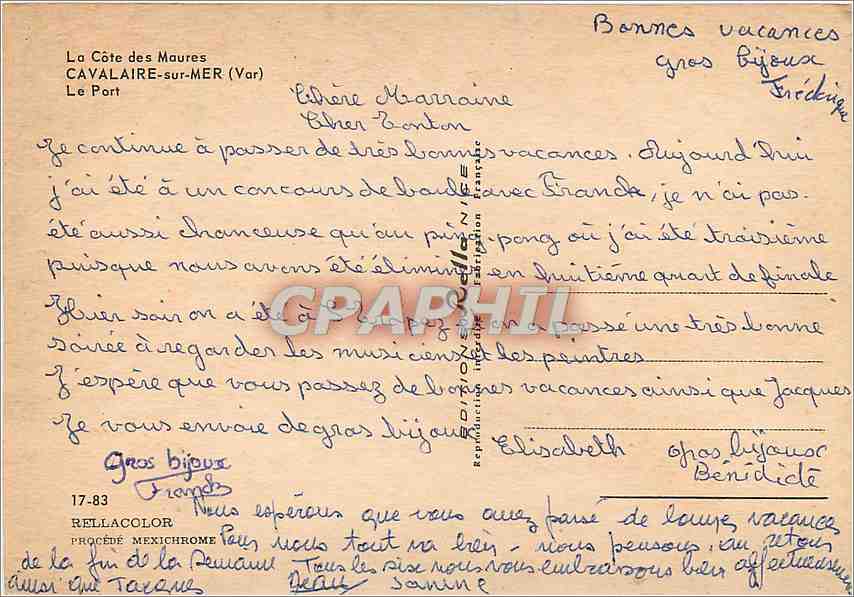 Bonnes vacances
gros bijoux
Frédérique
La Côte des Maures
CAVALAIRE-sur-MER (Var)
Le Port
Chère Marraine
Cher Tonton
Je continue à passer de très bonnes vacances. Aujourd'hui
j'ai été à un concours de boule avec Franck, je n'ai pas
été aussi chanceuse qu'au ping-pong où j'ai été troisième
puisque nous avons été éliminé en huitième quart de finale
Hier soir on a été à St Tropez et on a passé une très bonne
soirée à regarder les musiciens et les peintres
J'espère que vous passez de bonnes vacances ainsi que Jacques
Je vous envoie de gros bijoux
Elisabeth
gros bijoux
Bénédicte
gros bijoux
Franck
EDITIONS Rella NICE
Reproduction interdite Fabrication Française
CPAPHIL
17-83
RELLACOLOR
PROCÉDÉ MEXICHROME
Nous espérons que vous avez passé de bonnes vacances
Pour nous tout va bien - nous pensons au retour
de la fin de la semaine Tous les six nous vous embrassons bien affectueusement
ainsi que Jacques
Jean Janine